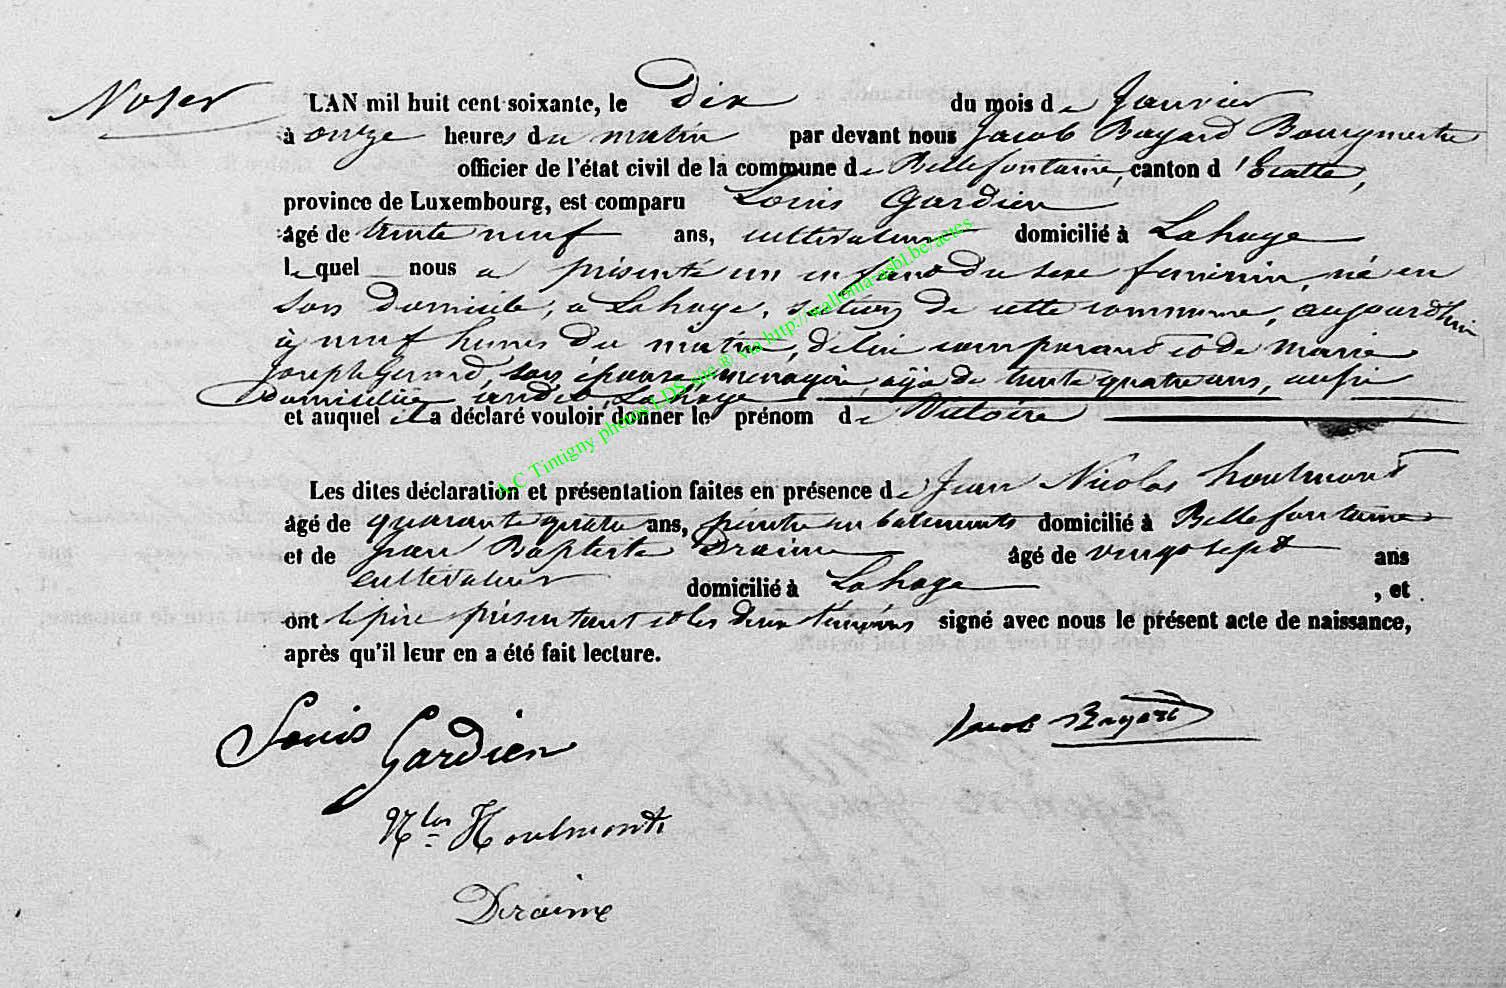 LAN mil huit cent soixante, le Dix du mois de Janvier
à onze heures du matin par devant nous Jacob Bayard Bourgmestre
officier de l'état civil de la commune de Bellefontaine, canton d'Etalle,
province de Luxembourg, est comparu Louis Gardien
âgé de trente neuf ans, cultivateur domicilié à Lahage
lequel nous a présenté un enfant du sexe feminin, né en
son domicile, a Lahage, section de cette commune, aujourd'hui
à neuf heures du matin, de lui comparant et de Marie
Joseph Gerard, son épouse menagère, agée de trente quatre ans, aussi
domiciliée audit Lahage
et auquel il a déclaré vouloir donner le prénom de Victoire
Les dites déclaration et présentation faites en présence de Jean Nicolas houlmont
âgé de quarante quatre ans, peintre en batiments domicilié à Bellefontaine
et de Jean Baptiste Draime âgé de vingt sept ans
cultivateur domicilié à Lahage , et
ont le père présentant et les deux témoins signé avec nous le présent acte de naissance,
après qu'il leur en a été fait lecture.
Louis Gardien
Jacob Bayard
Nlas Houlmont
Deraime
A.C Tintigny photos LDS site ® via http://wallonia-asbl.be/actes